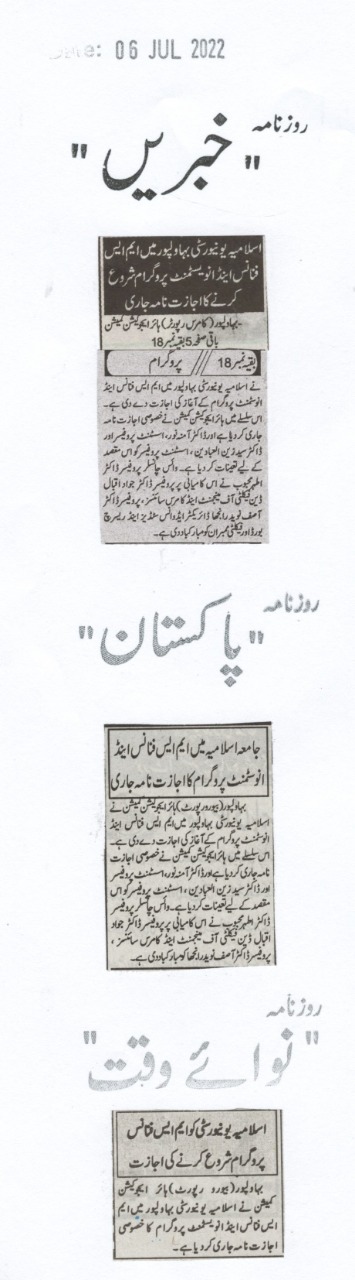 Date: 06 JUL 2022
روزنامہ
"خبریں"
اسلامیہ یونیورسٹی بہاولپور میں ایم ایس
فنانس اینڈ انویسٹمنٹ پروگرام شروع
کرنے کا اجازت نامہ جاری
بہاولپور (کامرس رپورٹر) ہائر ایجوکیشن کمیشن
باقی صفحہ 5 بقیہ نمبر 18
بقیہ نمبر 18 /// پروگرام
نے اسلامیہ یونیورسٹی بہاولپور میں ایم ایس فنانس اینڈ
انوسٹمنٹ پروگرام کے آغاز کی اجازت دے دی ہے۔
اس سلسلے میں ہائر ایجوکیشن کمیشن نے خصوصی اجازت نامہ
جاری کر دیا ہے اور ڈاکٹر آمنہ نور، اسسٹنٹ پروفیسر اور
ڈاکٹر سید زین العابدین، اسسٹنٹ پروفیسر کو اس مقصد
کے لیے تعینات کر دیا ہے۔ وائس چانسلر پروفیسر ڈاکٹر
اطہر محبوب نے اس کامیابی پر پروفیسر ڈاکٹر جواد اقبال
ڈین فیکلٹی آف مینجمنٹ اینڈ کامرس سائنسز، پروفیسر ڈاکٹر
آصف نوید رانجھا ڈائریکٹر ایڈوانس سٹڈیز اینڈ ریسرچ
بورڈ اور فیکلٹی ممبران کو مبارکباد دی ہے۔
روزنامہ
"پاکستان"
جامعہ اسلامیہ میں ایم ایس فنانس اینڈ
انوسٹمنٹ پروگرام کا اجازت نامہ جاری
بہاولپور (بیورو رپورٹ) ہائر ایجوکیشن کمیشن نے
اسلامیہ یونیورسٹی بہاولپور میں ایم ایس فنانس اینڈ
انوسٹمنٹ پروگرام کے آغاز کی اجازت دے دی ہے۔
اس سلسلے میں ہائر ایجوکیشن کمیشن نے خصوصی اجازت
نامہ جاری کر دیا ہے اور ڈاکٹر آمنہ نور، اسسٹنٹ پروفیسر
اور ڈاکٹر سید زین العابدین، اسسٹنٹ پروفیسر کو اس
مقصد کے لیے تعینات کر دیا ہے۔ وائس چانسلر پروفیسر
ڈاکٹر اطہر محبوب نے اس کامیابی پر پروفیسر ڈاکٹر جواد
اقبال ڈین فیکلٹی آف مینجمنٹ اینڈ کامرس سائنسز،
پروفیسر ڈاکٹر آصف نوید رانجھا کو مبارکباد دی ہے۔
روزنامہ
"نوائے وقت"
اسلامیہ یونیورسٹی کو ایم ایس فنانس
پروگرام شروع کرنے کی اجازت
بہاولپور (بیورو رپورٹ) ہائر ایجوکیشن
کمیشن نے اسلامیہ یونیورسٹی بہاولپور میں ایم
ایس فنانس اینڈ انویسٹمنٹ پروگرام کا خصوصی
اجازت نامہ جاری کر دیا ہے۔